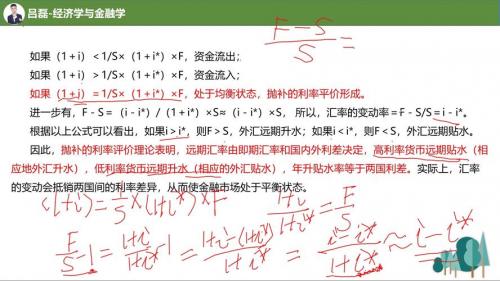 吕磊-经济学与金融学
F-S/S =
如果（1+i）＜1/S×（1+i*）×F，资金流出；
如果（1+i）＞1/S×（1+i*）×F，资金流入；
如果（1+i）=1/S×（1+i*）×F，处于均衡状态，抛补的利率平价形成。
进一步有，F-S=（i-i*）/（1+i*）×S≈（i-i*）×S， 所以，汇率的变动率＝F-S/S＝i-i*。
根据以上公式可以看出，如果i＞i*，则F＞S，外汇远期升水；如果i＜i*，则F＜S，外汇远期贴水。
因此，抛补的利率评价理论表明，远期汇率由即期汇率和国内外利差决定，高利率货币远期贴水（相
应地外汇升水），低利率货币远期升水（相应的外汇贴水），年升贴水率等于两国利差。实际上，汇率
的变动会抵销两国间的利率差异，从而使金融市场处于平衡状态。
(1+i) = 1/S × (1+i*) × F
1+i/1+i* = F/S
F/S -1 = 1+i/1+i* -1 = 1+i-(1+i*)/1+i* = i-i*/1+i* ≈ i-i*